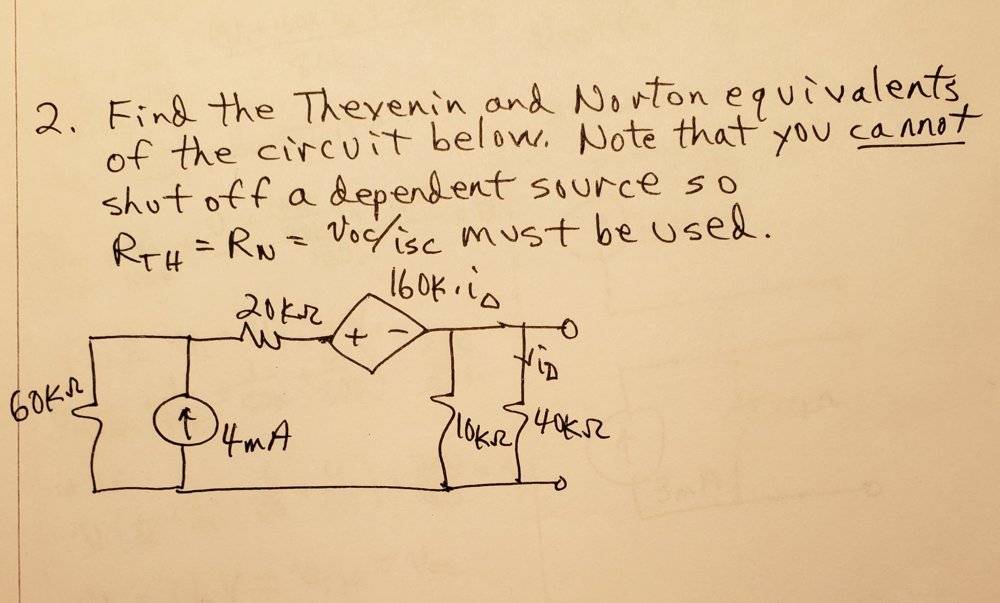 2. Find the Thevenin and Norton equivalents
of the circuit below. Note that you cannot
shut off a dependent source so
RTH = RN = voc/isc must be used.
160K·iΔ
20KΩ
+ -
iΔ
60KΩ
4mA
10KΩ
40KΩ